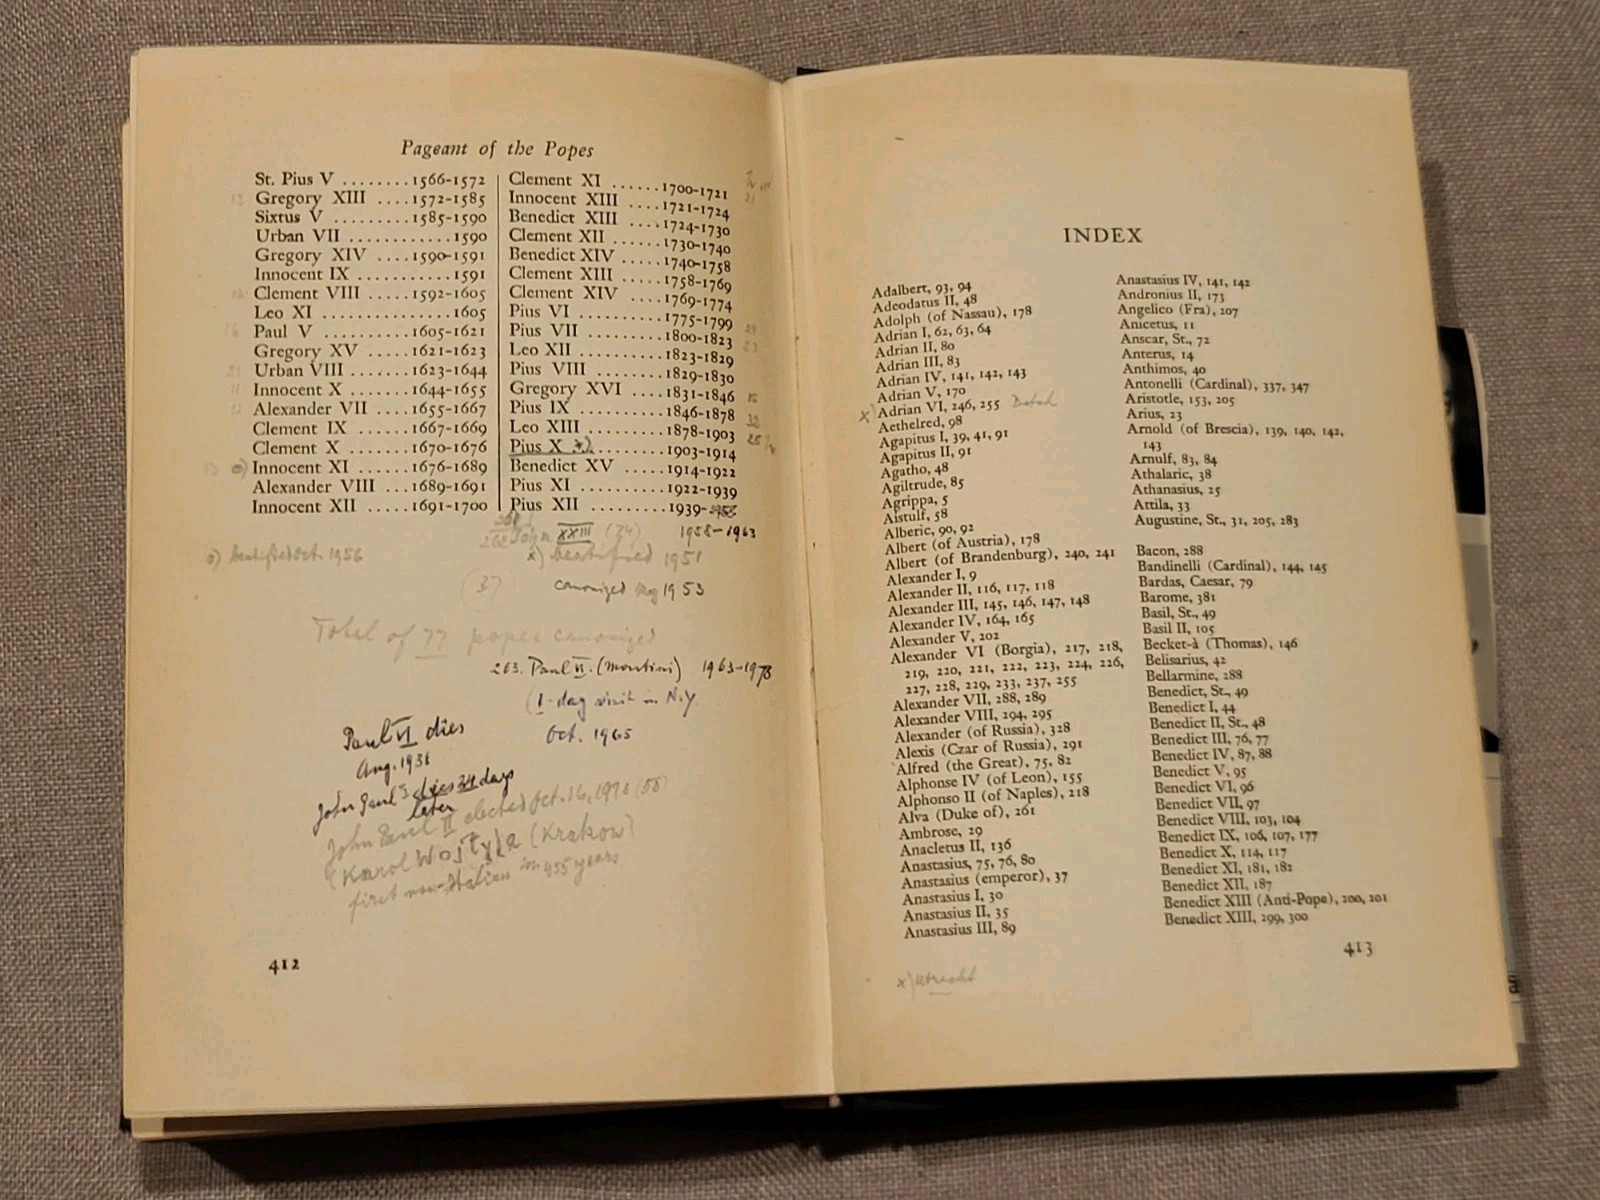 Pageant of the Popes
St. Pius V ........ 1566-1572
Gregory XIII .... 1572-1585
Sixtus V ......... 1585-1590
Urban VII ............ 1590
Gregory XIV .... 1590-1591
Innocent IX ........... 1591
Clement VIII ..... 1592-1605
Leo XI ............... 1605
Paul V ........... 1605-1621
Gregory XV ..... 1621-1623
Urban VIII ....... 1623-1644
Innocent X ...... 1644-1655
Alexander VII ... 1655-1667
Clement IX ...... 1667-1669
Clement X ....... 1670-1676
o) Innocent XI ..... 1676-1689
Alexander VIII ... 1689-1691
Innocent XII ..... 1691-1700
Clement XI ...... 1700-1721
Innocent XIII .... 1721-1724
Benedict XIII .... 1724-1730
Clement XII ...... 1730-1740
Benedict XIV ..... 1740-1758
Clement XIII ..... 1758-1769
Clement XIV .... 1769-1774
Pius VI .......... 1775-1799
Pius VII ......... 1800-1823
Leo XII .......... 1823-1829
Pius VIII ........ 1829-1830
Gregory XVI ..... 1831-1846
Pius IX .......... 1846-1878
Leo XIII ......... 1878-1903
Pius X x) ........ 1903-1914
Benedict XV ..... 1914-1922
Pius XI .......... 1922-1939
Pius XII ......... 1939-1958
262 John XXIII (74) 1958-1963
o) beatified Oct. 1956
x) beatified 1951
(37) canonized May 1953
Total of 77 popes canonized
263. Paul VI. (Montini) 1963-1978
(1-day visit in N.Y.
Oct. 1965
Paul VI dies
Aug. 1938
John Paul dies 34 days
later
John Paul II elected Oct. 16, 1978 (58)
(Karol Wojtyla (Krakow)
first non-Italian in 455 years
412
INDEX
Adalbert, 93, 94
Adeodatus II, 48
Adolph (of Nassau), 178
Adrian I, 62, 63, 64
Adrian II, 80
Adrian III, 83
Adrian IV, 141, 142, 143
Adrian V, 170
x) Adrian VI, 246, 255 Dutch
Aethelred, 98
Agapitus I, 39, 41, 91
Agapitus II, 91
Agatho, 48
Agiltrude, 85
Agrippa, 5
Aistulf, 58
Alberic, 90, 92
Albert (of Austria), 178
Albert (of Brandenburg), 240, 241
Alexander I, 9
Alexander II, 116, 117, 118
Alexander III, 145, 146, 147, 148
Alexander IV, 164, 165
Alexander V, 202
Alexander VI (Borgia), 217, 218,
219, 220, 221, 222, 223, 224, 226,
227, 228, 229, 233, 237, 255
Alexander VII, 288, 289
Alexander VIII, 294, 295
Alexander (of Russia), 328
Alexis (Czar of Russia), 291
Alfred (the Great), 75, 82
Alphonse IV (of Leon), 155
Alphonso II (of Naples), 218
Alva (Duke of), 261
Ambrose, 29
Anacletus II, 136
Anastasius, 75, 76, 80
Anastasius (emperor), 37
Anastasius I, 30
Anastasius II, 35
Anastasius III, 89
Anastasius IV, 141, 142
Andronius II, 173
Angelico (Fra), 207
Anicetus, 11
Anscar, St., 72
Anterus, 14
Anthimos, 40
Antonelli (Cardinal), 337, 347
Aristotle, 153, 205
Arius, 23
Arnold (of Brescia), 139, 140, 142,
143
Arnulf, 83, 84
Athalaric, 38
Athanasius, 25
Attila, 33
Augustine, St., 31, 205, 283
Bacon, 288
Bandinelli (Cardinal), 144, 145
Bardas, Caesar, 79
Barome, 381
Basil, St., 49
Basil II, 105
Becket-à (Thomas), 146
Belisarius, 42
Bellarmine, 288
Benedict, St., 49
Benedict I, 44
Benedict II, St., 48
Benedict III, 76, 77
Benedict IV, 87, 88
Benedict V, 95
Benedict VI, 96
Benedict VII, 97
Benedict VIII, 103, 104
Benedict IX, 106, 107, 177
Benedict X, 114, 117
Benedict XI, 181, 182
Benedict XII, 187
Benedict XIII (Anti-Pope), 200, 201
Benedict XIII, 299, 300
413
x) Utrecht